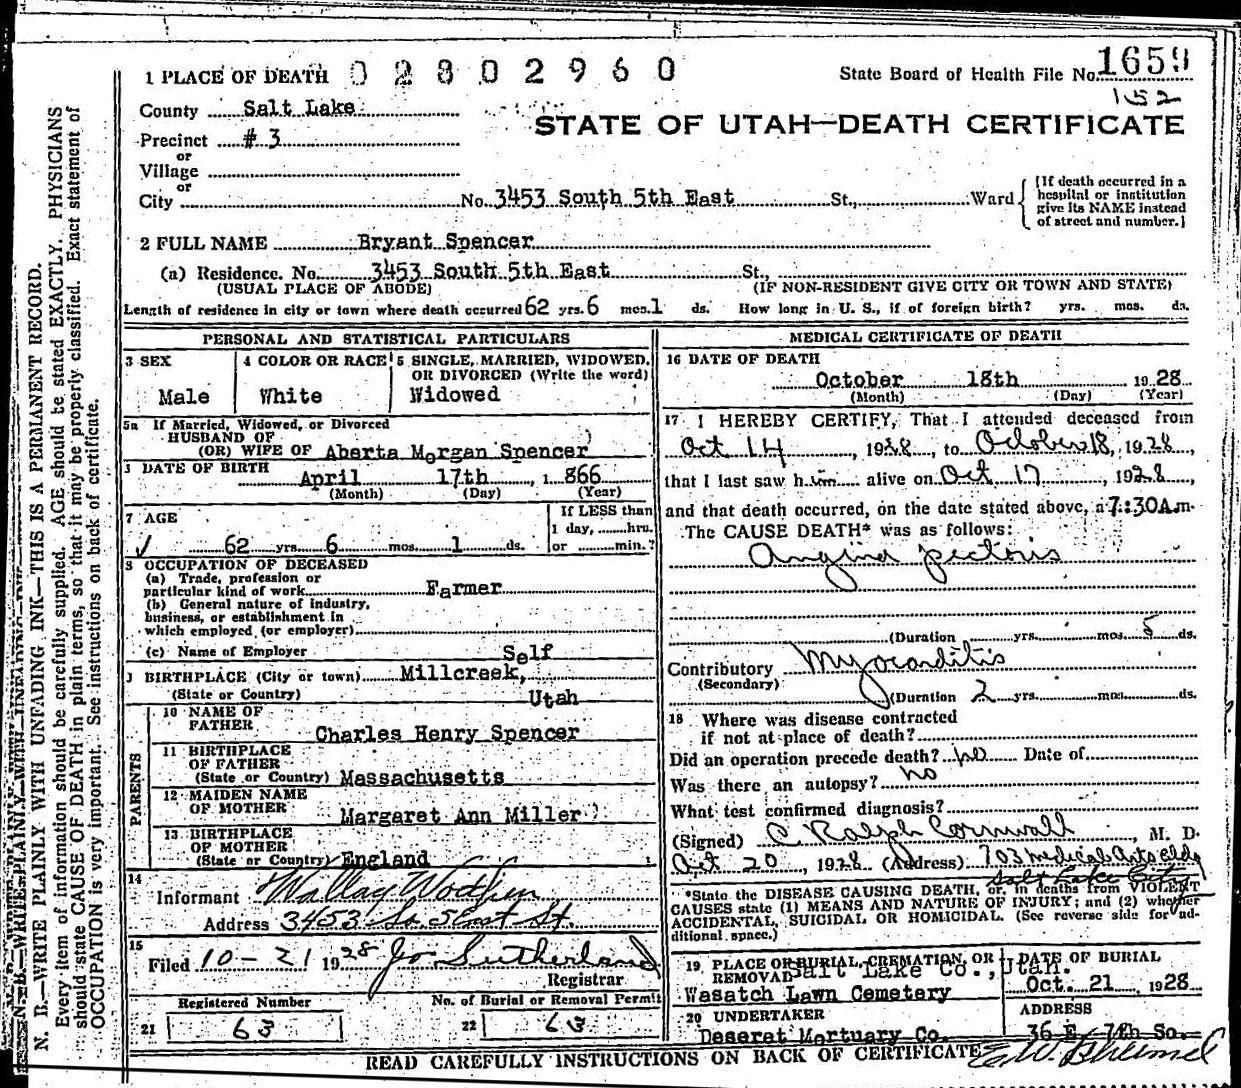 1 PLACE OF DEATH 02802960
State Board of Health File No. 1659
152
County Salt Lake
STATE OF UTAH—DEATH CERTIFICATE
Precinct # 3
or
Village
or
City No. 3453 South 5th East St., Ward
[If death occurred in a
hospital or institution
give its NAME instead
of street and number.]
2 FULL NAME Bryant Spencer
(a) Residence. No. 3453 South 5th East St.,
(USUAL PLACE OF ABODE) (IF NON-RESIDENT GIVE CITY OR TOWN AND STATE)
Length of residence in city or town where death occurred 62 yrs. 6 mos. 1 ds. How long in U. S., if of foreign birth? yrs. mos. ds.
PERSONAL AND STATISTICAL PARTICULARS
3 SEX
Male
4 COLOR OR RACE
White
5 SINGLE, MARRIED, WIDOWED,
OR DIVORCED (Write the word)
Widowed
5a If Married, Widowed, or Divorced
HUSBAND OF
(OR) WIFE OF Aberta Morgan Spencer
DATE OF BIRTH
April 17th, 1866
(Month) (Day) (Year)
7 AGE
62 yrs. 6 mos. 1 ds.
If LESS than
1 day, hrs.
or min.?
8 OCCUPATION OF DECEASED
(a) Trade, profession or
particular kind of work Farmer
(b) General nature of industry,
business, or establishment in
which employed (or employer)
(c) Name of Employer Self
BIRTHPLACE (City or town) Millcreek,
(State or Country) Utah
PARENTS
10 NAME OF
FATHER Charles Henry Spencer
11 BIRTHPLACE
OF FATHER
(State or Country) Massachusetts
12 MAIDEN NAME
OF MOTHER Margaret Ann Miller
13 BIRTHPLACE
OF MOTHER
(State or Country) England
14
Informant
Address 3453 So. 5 East St.
15
Filed 10-21 1928 Jo Sutherland
Registrar
Registered Number
21 63
No. of Burial or Removal Permit
22 63
MEDICAL CERTIFICATE OF DEATH
16 DATE OF DEATH
October 18th 1928
(Month) (Day) (Year)
17 I HEREBY CERTIFY, That I attended deceased from
Oct 14, 1928, to October 18, 1928,
that I last saw him alive on Oct 17, 1928,
and that death occurred, on the date stated above, at 7:30A m.
The CAUSE DEATH* was as follows:
Angina pectoris
(Duration yrs. mos. 5 ds.
Contributory Myocarditis
(Secondary)
(Duration 2 yrs. mos. ds.
18 Where was disease contracted
if not at place of death?
Did an operation precede death? no Date of
Was there an autopsy? no
What test confirmed diagnosis?
(Signed) C. Ralph Cornwall, M. D.
Oct 20, 1928 (Address) 703 Medical Arts Bldg
Salt Lake City
*State the DISEASE CAUSING DEATH, or, in deaths from VIOLENT
CAUSES state (1) MEANS AND NATURE OF INJURY; and (2) whether
ACCIDENTAL, SUICIDAL OR HOMICIDAL. (See reverse side for ad-
ditional space.)
19 PLACE OR BURIAL, CREMATION, OR
REMOVAL Salt Lake Co., Utah.
Wasatch Lawn Cemetery
DATE OF BURIAL
Oct. 21 1928
20 UNDERTAKER
Deseret Mortuary Co.
ADDRESS
36 E 7th So.
READ CAREFULLY INSTRUCTIONS ON BACK OF CERTIFICATE
N. B.—WRITE PLAINLY WITH UNFADING INK—THIS IS A PERMANENT RECORD.
Every item of information should be carefully supplied. AGE should be stated EXACTLY. PHYSICIANS
should state CAUSE OF DEATH in plain terms, so that it may be properly classified. Exact statement of
OCCUPATION is very important. See instructions on back of certificate.